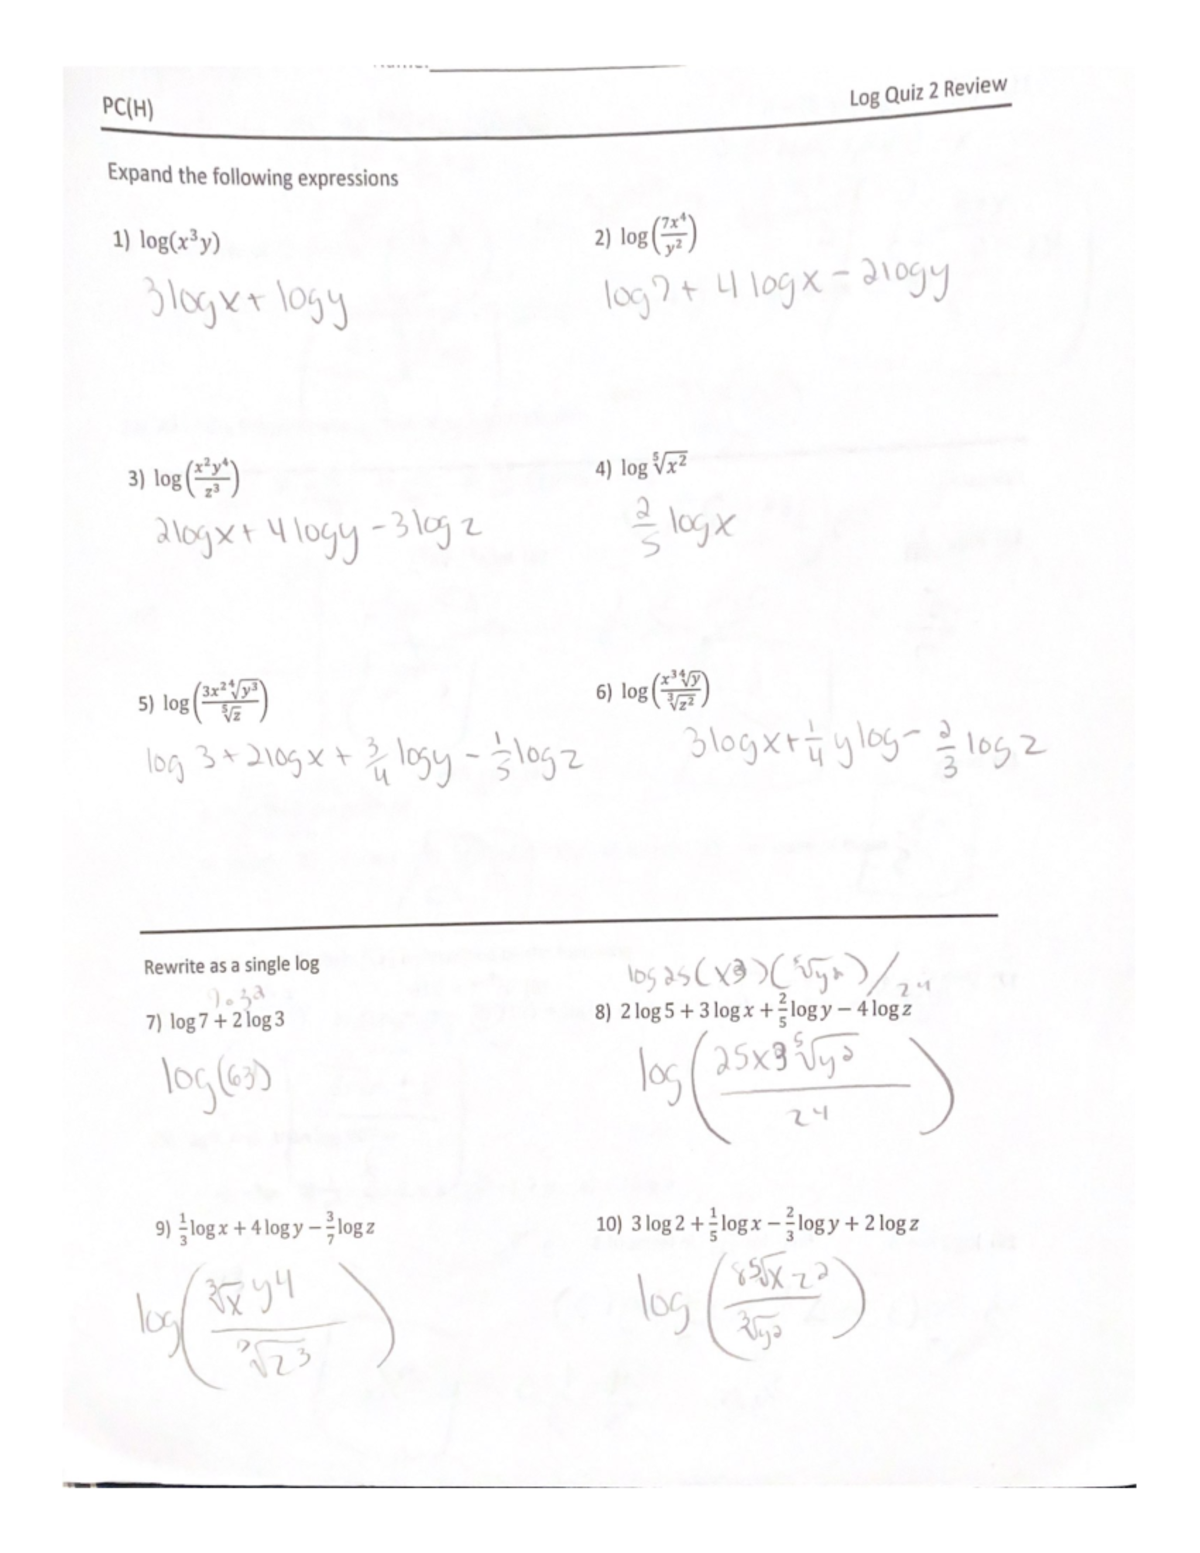 PC(H)
Log Quiz 2 Review
Expand the following expressions
1) log(x³y)
3logx + logy
2) log(7x⁴/y²)
log7 + 4logx - 2logy
3) log(x²y⁴/z³)
2logx + 4logy - 3logz
4) log ⁵√x²
2/5 logx
5) log(3x² ⁴√y³ / ⁵√z)
log 3 + 2logx + 3/4 logy - 1/5 logz
6) log(x³ ⁴√y / ³√z²)
3logx + 1/4 ylog - 2/3 logz
Rewrite as a single log
7) log 7 + 2 log 3
log(63)
log25(x3)(⁵√y²)/z4
8) 2 log 5 + 3 log x + 2/5 log y − 4 log z
log(25x3 ⁵√y² / z4)
9) 1/3 log x + 4 log y − 3/7 log z
log(³√x y4 / ⁷√z3)
10) 3 log 2 + 1/5 log x − 2/3 log y + 2 log z
log(8 ⁵√x z² / ³√y²)